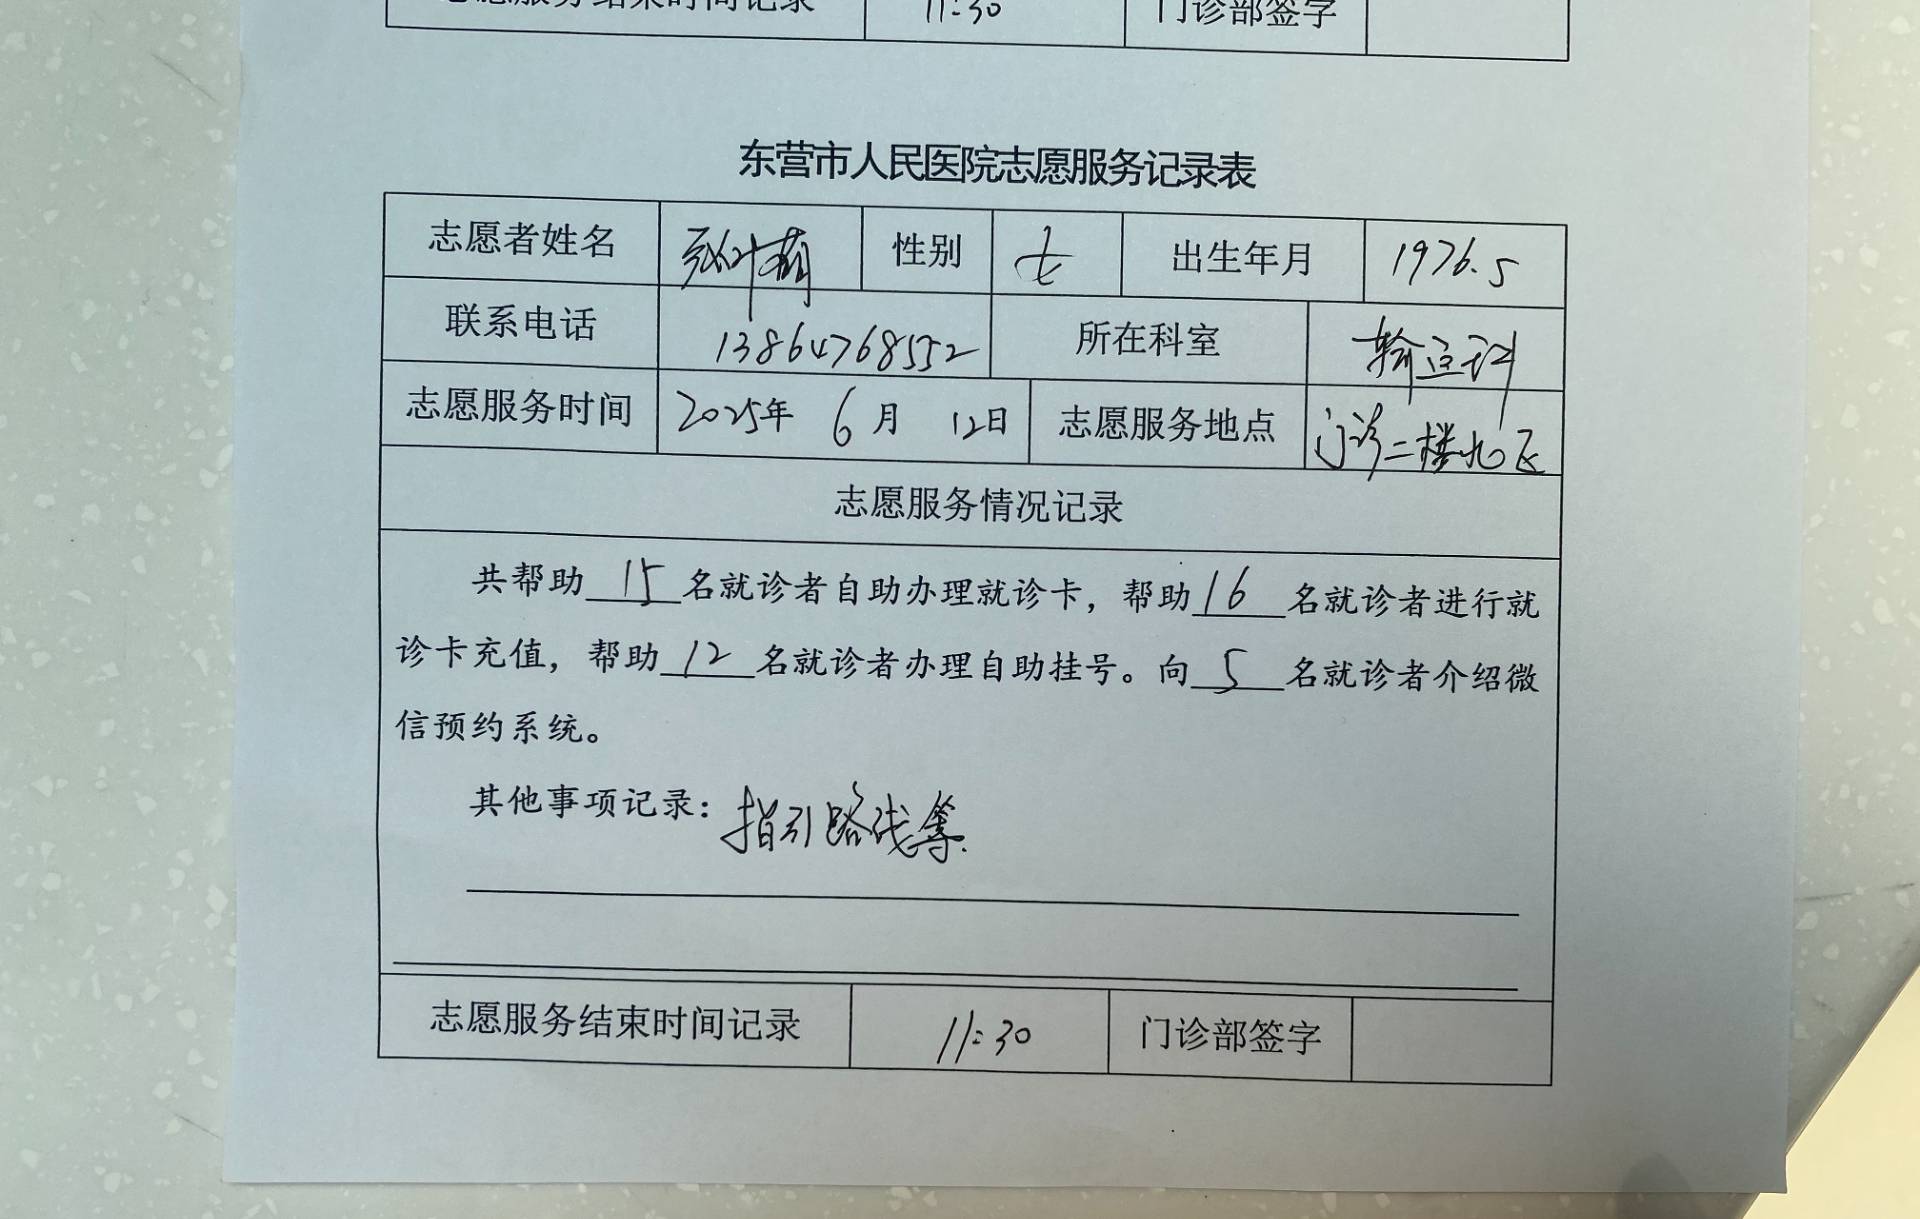 志愿服务结束时间记录 11:30 门诊部签字
东营市人民医院志愿服务记录表
志愿者姓名 性别 女 出生年月 1976.5
联系电话 13864768552 所在科室 输血科
志愿服务时间 2025年 6月 12日 志愿服务地点 门诊二楼北区
志愿服务情况记录
共帮助15名就诊者自助办理就诊卡，帮助16名就诊者进行就
诊卡充值，帮助12名就诊者办理自助挂号。向5名就诊者介绍微
信预约系统。
其他事项记录：指引路线等.
志愿服务结束时间记录 11:30 门诊部签字